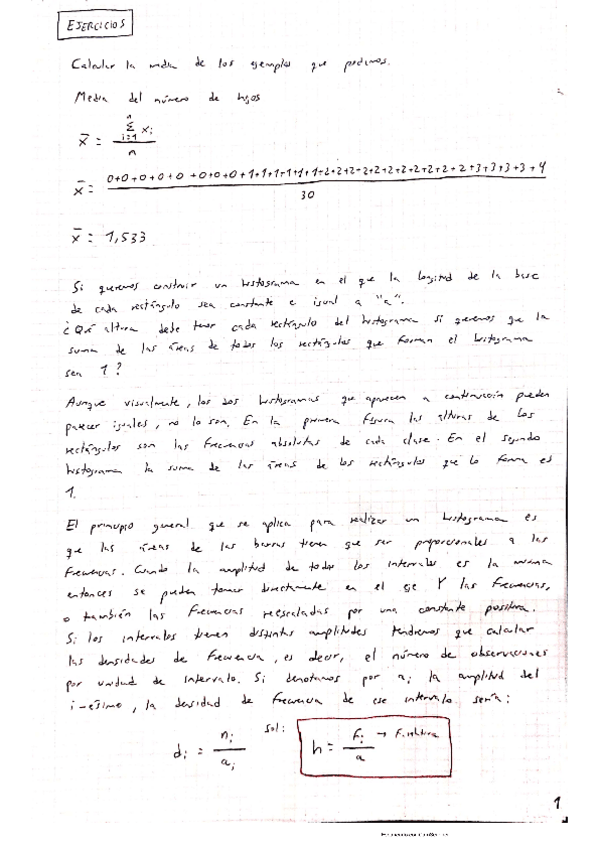 EJERCICIOS
Calcular la media de los ejemplos que podamos.
Media del número de hijos
x̄ = Σ(i=1 → n) xᵢ / n
x̄ = 0+0+0+0+0+0+0+0+1+1+1+1+1+1+1+2+2+2+2+2+2+2+2+2+2+3+3+3+3+4 / 30
x̄ = 1,533
Si queremos construir un histograma en el que la longitud de la base
de cada rectángulo sea constante e igual a "a".
¿Qué altura debe tener cada rectángulo del histograma si queremos que la
suma de las áreas de todos los rectángulos que forman el histograma
sea 1?
Aunque visualmente, los dos histogramas que aparecen a continuación pueden
parecer iguales, no lo son. En la primera figura las alturas de los
rectángulos son las frecuencias absolutas de cada clase. En el segundo
histograma la suma de las áreas de los rectángulos que lo forma es
1.
El principio general que se aplica para realizar un histograma es
que las áreas de las barras tienen que ser proporcionales a las
frecuencias. Cuando la amplitud de todos los intervalos es la misma
entonces se pueden tomar directamente en el eje Y las frecuencias,
o también las frecuencias reescaladas por una constante positiva.
Si los intervalos tienen distintas amplitudes tendremos que calcular
las densidades de frecuencia, es decir, el número de observaciones
por unidad de intervalo. Si denotamos por aᵢ la amplitud del
i-esimo, la densidad de frecuencia de ese intervalo sería:
dᵢ = nᵢ / aᵢ Sol: h = fᵢ / a → F. relativa
1